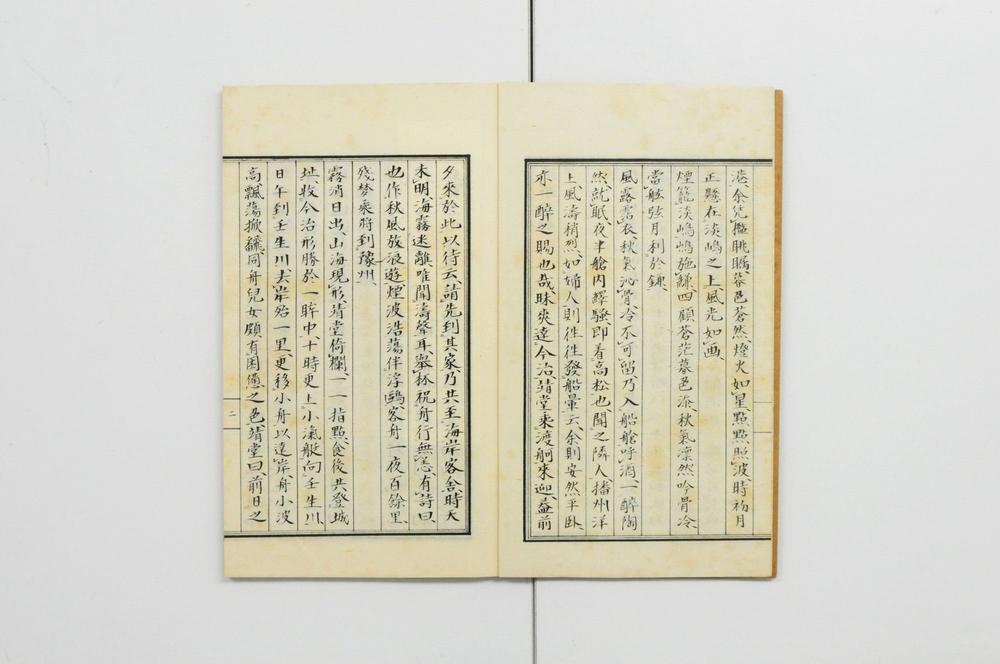 港、余凭檻眺矚、暮色蒼然、燈火如星、點點照波、時初月
正懸在淡嶋之上、風光如画、
煙籠淡嶋嶋施縑四顧蒼茫暮色添秋氣凛然吟骨冷
當舷弦月利於鎌、
風露霑衣、秋氣沁骨、冷不可留、乃入船艙呼酒、一醉陶
然、就眠、夜半艙内繹騒、即着高松也、聞之隣人、播州洋
上、風濤稍烈、如婦人則徃徃發船暈云、余則安然平臥、
亦一醉之賜也哉、昧爽達今治、靖堂来渡舸来迎、蓋前
夕來於此以待云、請先到其家、乃共至海岸客舎、時天
未明、海霧迷離、唯聞濤聲耳、擧杯祝舟行無恙、有詩曰、
也作秋風放浪遊煙波浩蕩伴浮鷗客舟一夜百餘里、
殘夢乘將到豫州、
霧消日出、山海現形、靖堂倚欄、一一指點、食後共登城
址、收今治形勝於一眸中、十時更上小滊艇、向壬生川、
日午到壬生川、去岸殆一里、更移小舟以達岸、舟小波
高、飄蕩掀翻、同舟兒女頗有困憊之色、靖堂曰、前日之
二